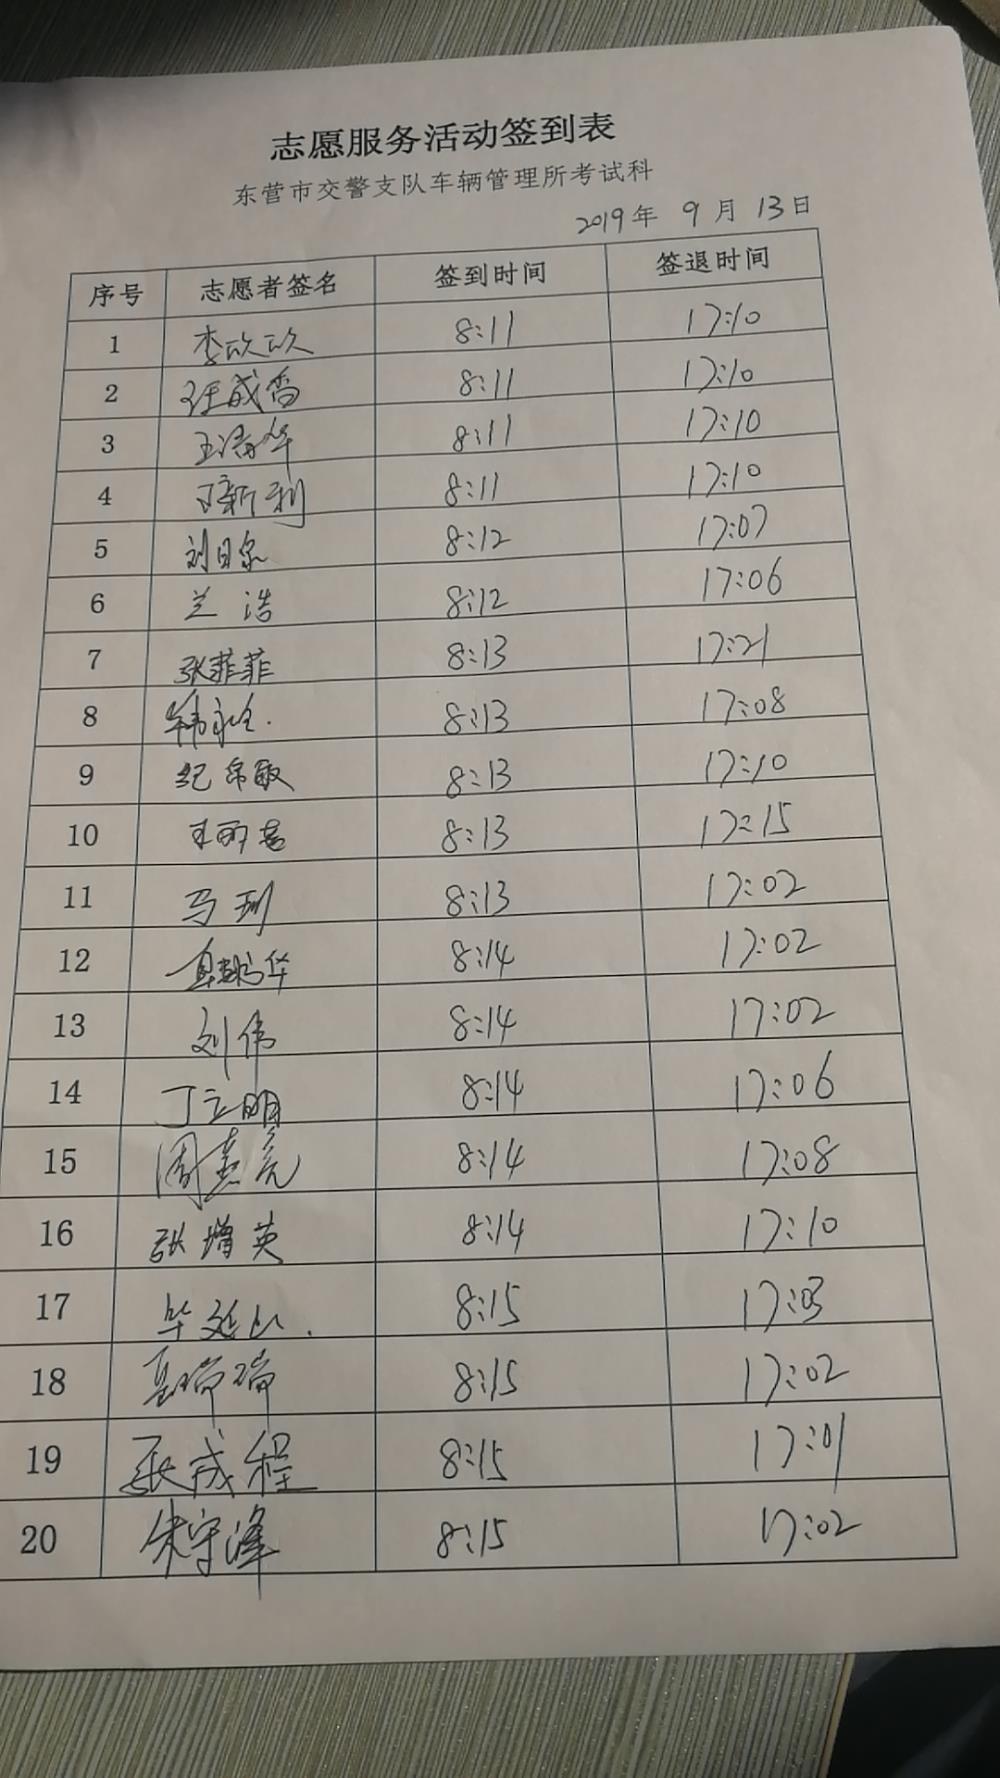 志愿服务活动签到表
东营市交警支队车辆管理所考试科
2019年 9月 13日
序号 志愿者签名 签到时间 签退时间
1 李欣欣 8:11 17:10
2 8:11 17:10
3 8:11 17:10
4 新利 8:11 17:10
5 刘日 8:12 17:07
6 兰浩 8:12 17:06
7 张菲菲 8:13 17:21
8 韩 8:13 17:08
9 纪 敏 8:13 17:10
10 8:13 17:15
11 马 8:13 17:02
12 华 8:14 17:02
13 刘伟 8:14 17:02
14 丁立明 8:14 17:06
15 周 亮 8:14 17:08
16 张增英 8:14 17:10
17 毕延山. 8:15 17:03
18 瑞瑞 8:15 17:02
19 张成程 8:15 17:01
20 朱守峰 8:15 17:02